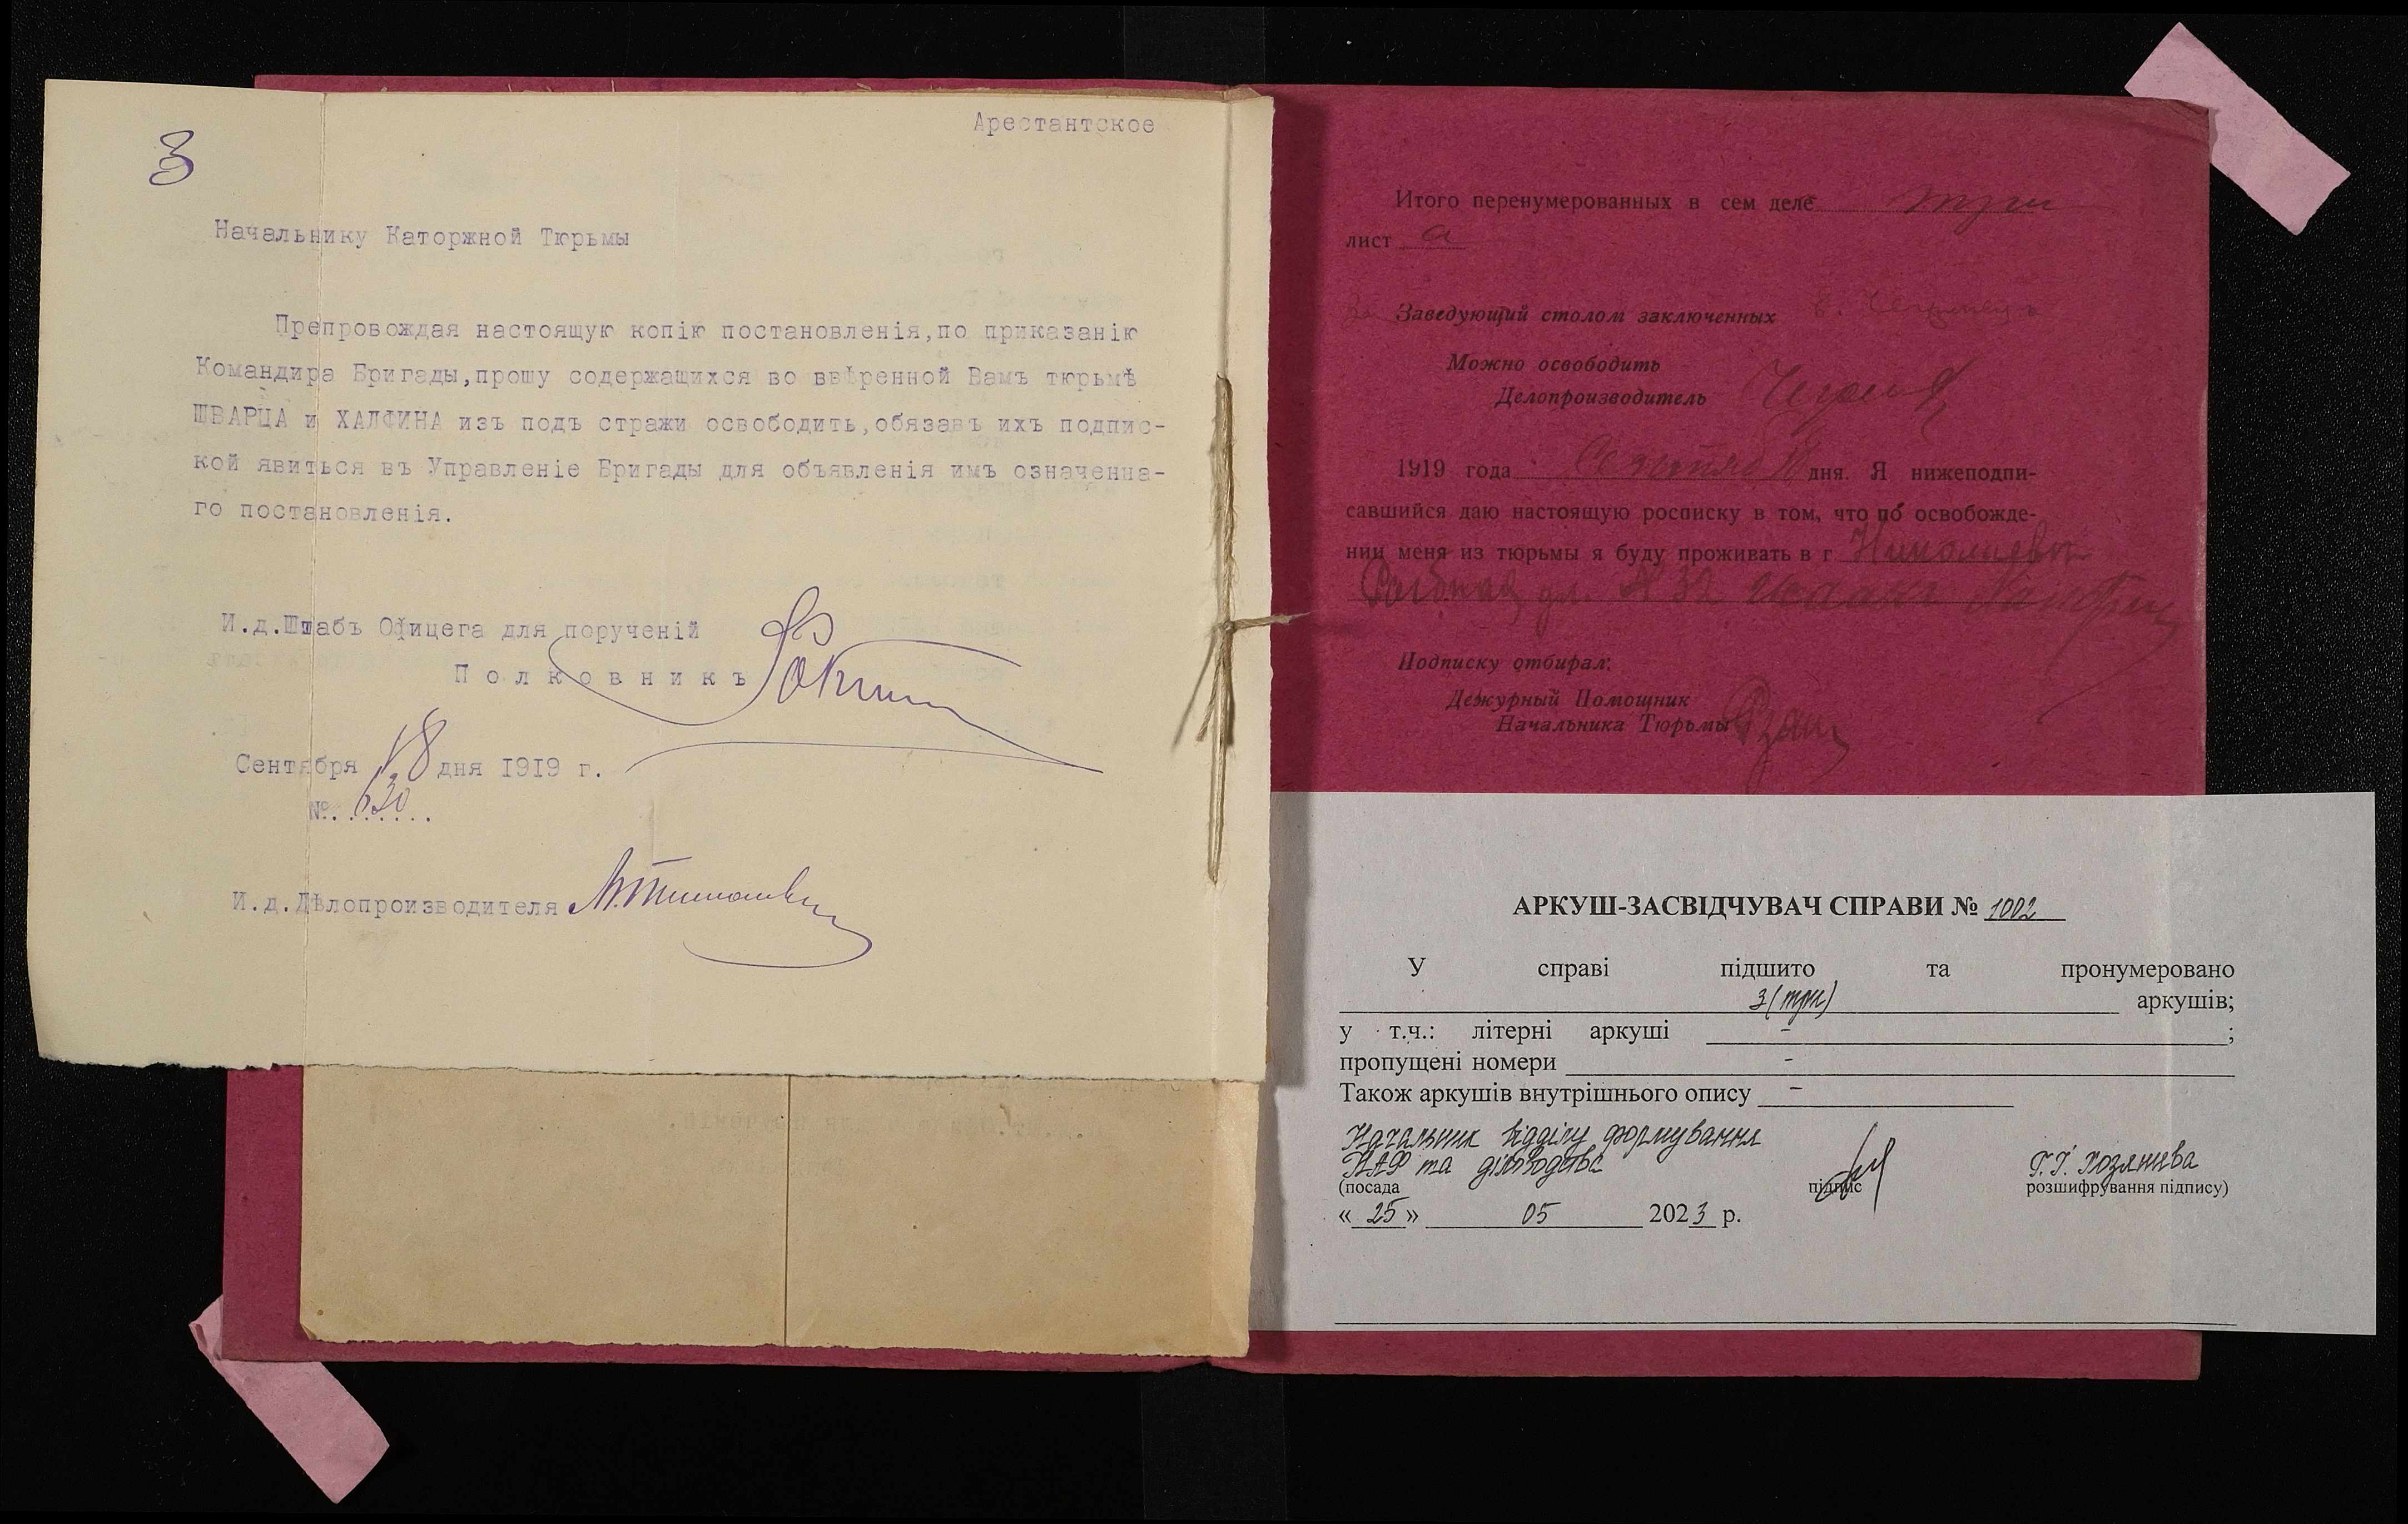 3
Арестантское
Начальнику Каторжной Тюрьмы
Препровождая настоящую копію постановленія,по приказанію
Командира Бригады,прошу содержащихся во ввѣренной Вамъ тюрьмѣ
ШВАРЦА и ХАЛФИНА изъ подъ стражи освободить,обязавъ ихъ подпис-
кой явиться въ Управленіе Бригады для объявленія имъ означенна-
го постановленія.
И.д.Штабъ Офицега для порученій
Полковникъ
Сентября 18 дня 1919 г.
№. 630
И.д.Дѣлопроизводителя
Итого перенумерованных в сем деле три
лист а
За Заведующий столом заключенных
Можно освободить
Делопроизводитель
1919 года Сентября 18 дня. Я нижеподпи-
савшийся даю настоящую росписку в том, что по освобожде-
нии меня из тюрьмы я буду проживать в г. Николаевѣ
ул. № 32
Подписку отбирал:
Дежурный Помощник
Начальника Тюрьмы
АРКУШ-ЗАСВІДЧУВАЧ СПРАВИ № 1002
У справі підшито та пронумеровано
3 (три) аркушів;
у т.ч.: літерні аркуші - ;
пропущені номери -
Також аркушів внутрішнього опису -
Начальник відділу формування
НАФ та діловодства
(посада підпис розшифрування підпису)
Г.І. Хозяшева
« 25 » 05 2023 р.